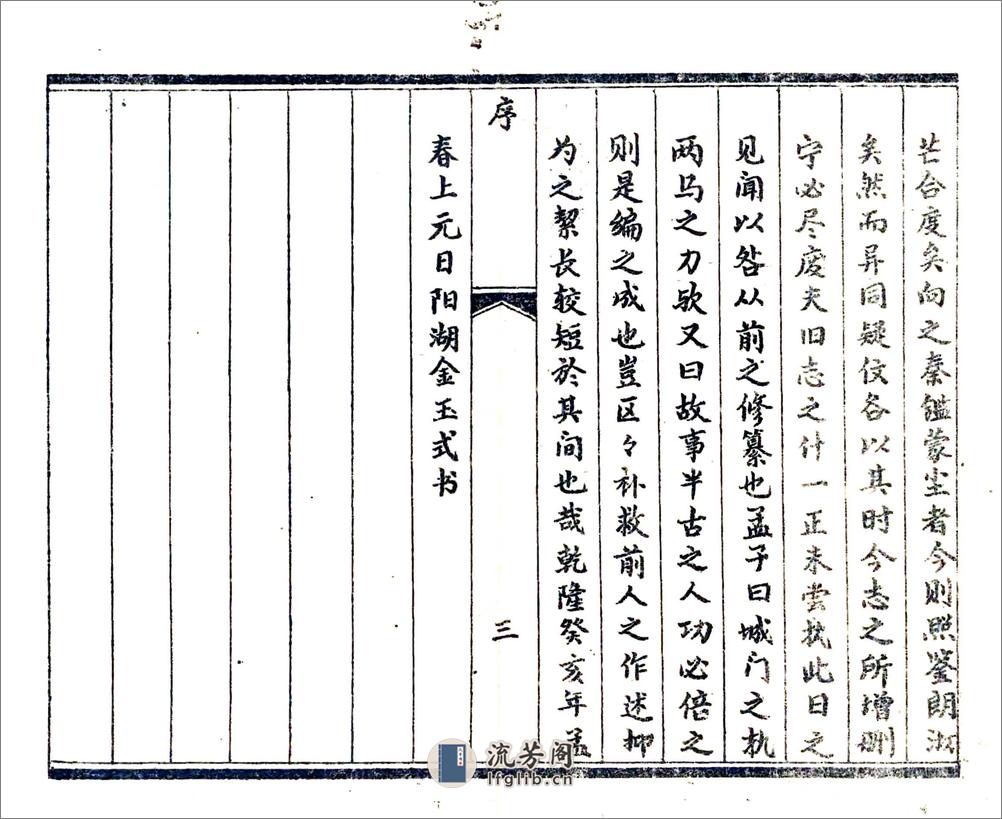 芒合度矣向之秦鑑蒙尘者今则照鉴朗
矣然而异同疑仗各以其时今志之所增删
宁必尽废夫旧志之什一正未尝执此日之
见闻以咎从前之修纂也孟子曰城门之轨
两马之力欤又曰故事半古之人功必倍之
则是编之成也岂区々补救前人之作述抑
为之絜长较短於其间也哉乾隆癸亥年孟
序
三
春上元日阳湖金玉式书
流芳阁
lfglib.cn